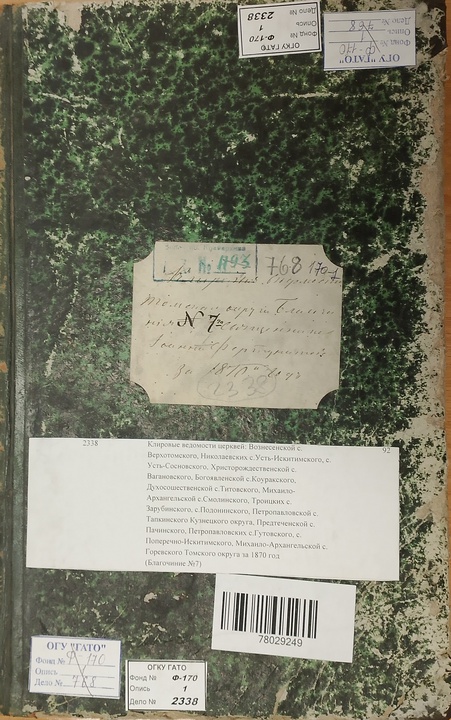 ОГКУ ГАТО
Фонд № Ф-170
Опись 1
Дело № 2338
ОГУ "ГАТО"
Фонд № Ф-170
Опись
Дело № 768
№ 1193
768
170-1
Томскаго округа Благочи
№ 7
за 1870 годъ
2338
2338 Клировые ведомости церквей: Вознесенской с. 92
Верхотомского, Николаевских с.Усть-Искитимского, с.
Усть-Сосновского, Христорождественской с.
Вагановского, Богоявленской с.Коуракского,
Духосошественской с.Титовского, Михаило-
Архангельской с.Смолинского, Троицких с.
Зарубинского, с.Подонинского, Петропавловской с.
Тапкинского Кузнецкого округа, Предтеченской с.
Пачинского, Петропавловских с.Гутовского, с.
Поперечно-Искитимского, Михаило-Архангельской с.
Горевского Томского округа за 1870 год
(Благочиние №7)
78029249
ОГУ "ГАТО"
Фонд № Ф-170
Опись
Дело № 768
ОГКУ ГАТО
Фонд № Ф-170
Опись 1
Дело № 2338